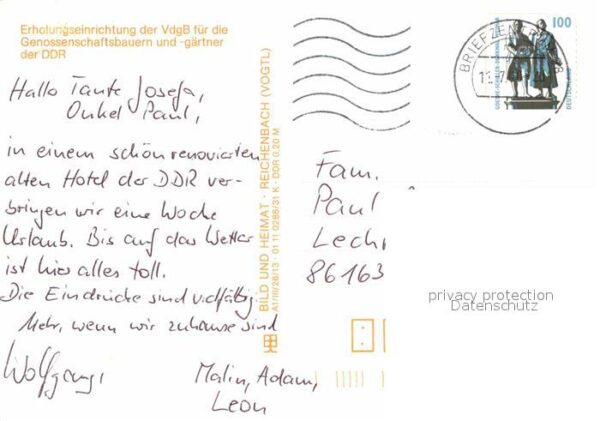 Erholungseinrichtung der VdgB für die
Genossenschaftsbauern und -gärtner
der DDR
Hallo Tante Josefa,
Onkel Paul,
in einem schön renovierten
alten Hotel der DDR ver-
bringen wir eine Woche
Urlaub. Bis auf das Wetter
ist hier alles toll.
Die Eindrücke sind vielfältig.
Mehr, wenn wir zuhause sind
Wolfgang,
Malin, Adam,
Leon
BILD UND HEIMAT · REICHENBACH (VOGTL)
A1/III/26/13 · 01 11 0286/31 K · DDR 0,20 M
BRIEFZENTRUM
100
DEUTSCHLAND
Fam.
Paul
Lech
86163
privacy protection
Datenschutz